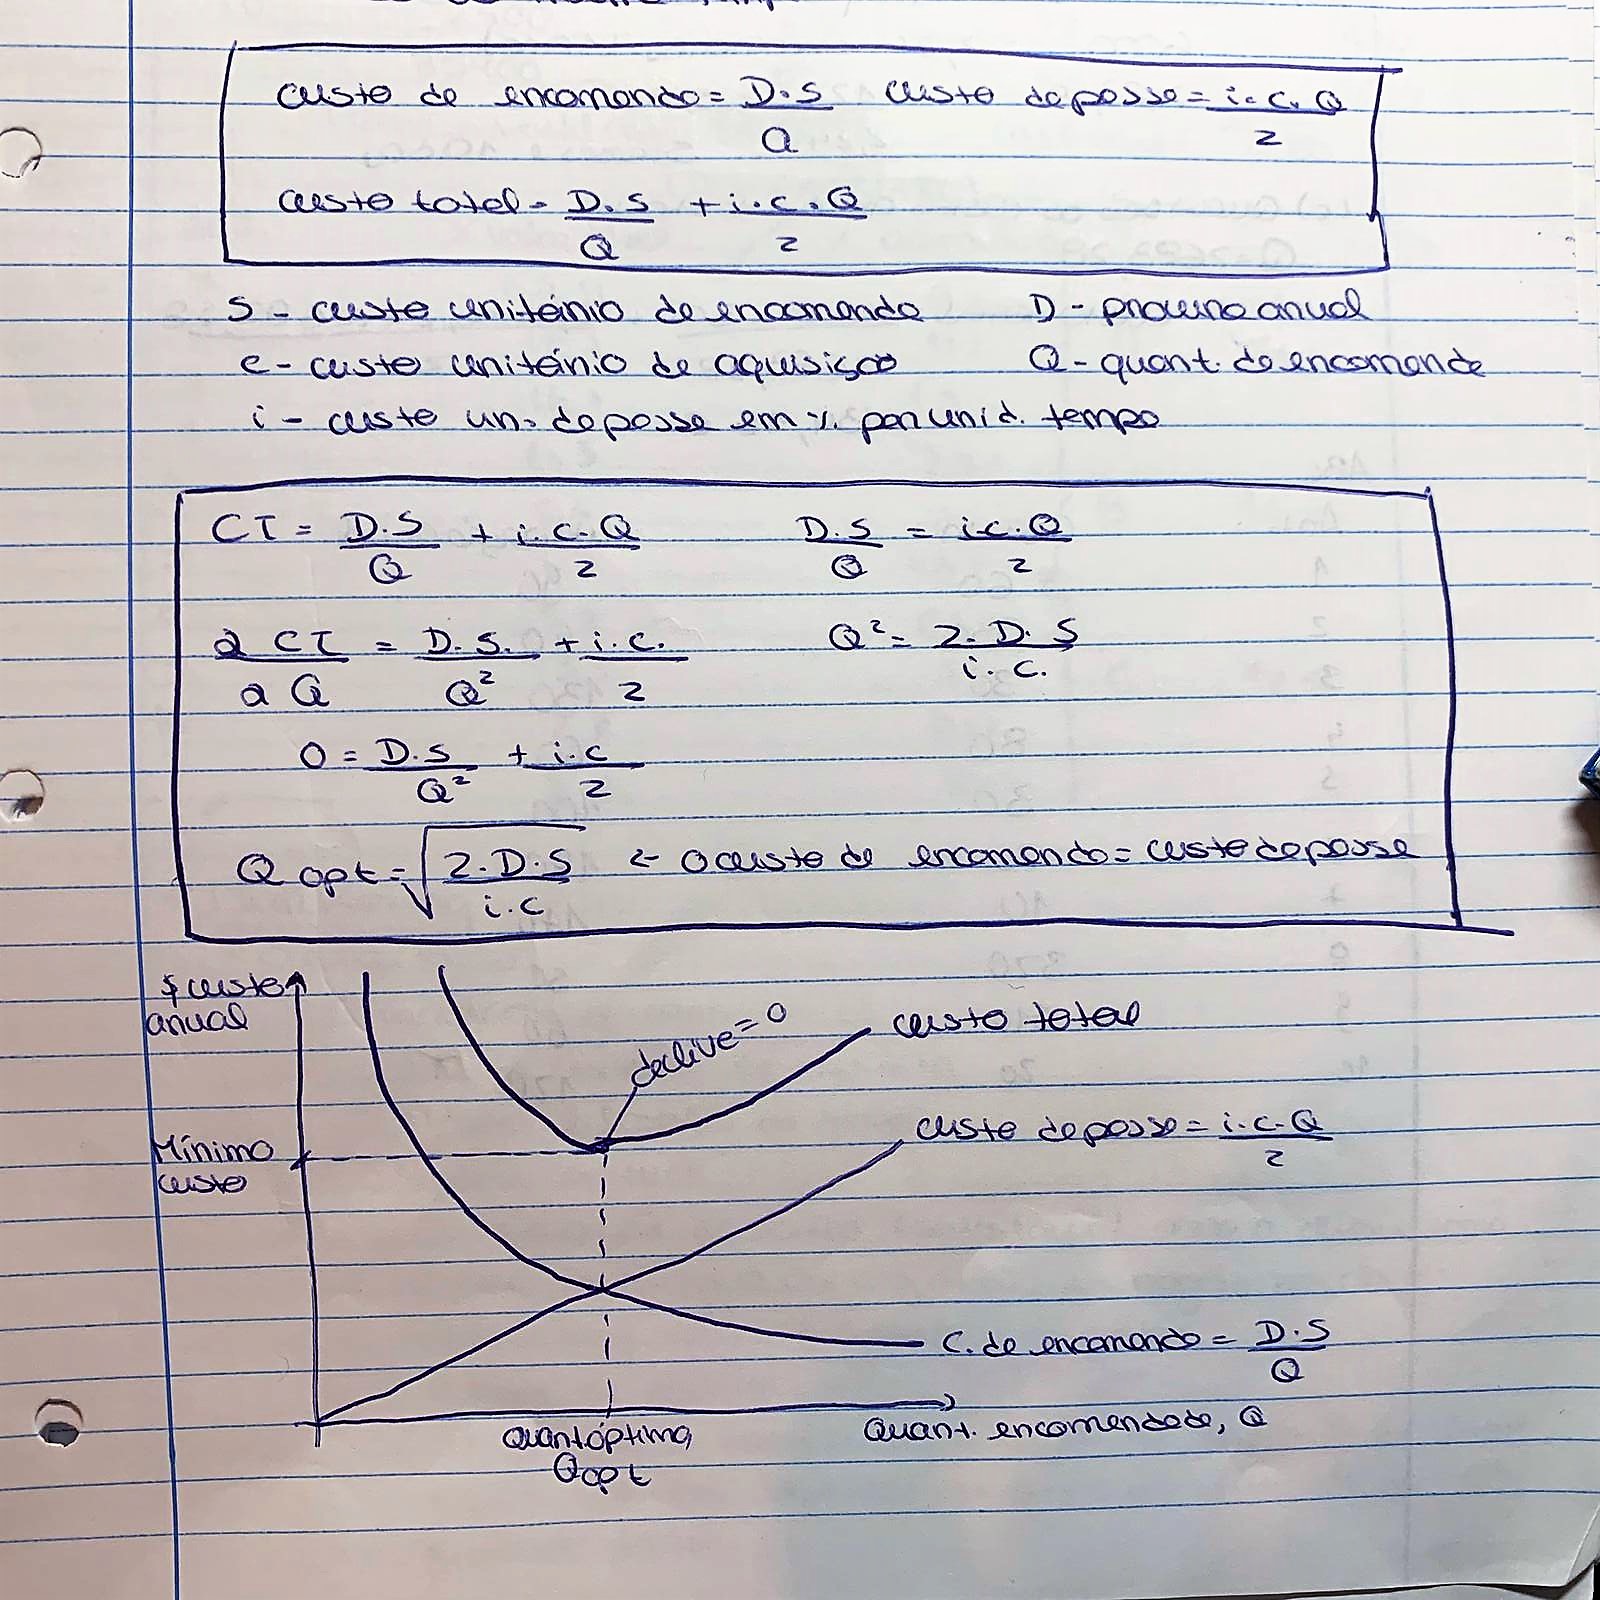 custo de encomenda = D.S/Q custo de posse = i.c.Q/2
custo total = D.S/Q + i.c.Q/2
S - custo unitário de encomenda D - procura anual
c - custo unitário de aquisição Q - quant. de encomenda
i - custo un. de posse em % por unid. tempo
CT = D.S/Q + i.c.Q/2 D.S/Q = i.c.Q/2
∂CT/∂Q = D.S./Q² + i.c./2 Q² = 2.D.S/i.c.
0 = D.S/Q² + i.c/2
Q opt = √(2.D.S/i.c) ← o custo de encomenda = custo de posse
$ custo anual
declive = 0
custo total
Mínimo custo
custo de posse = i.c.Q/2
C. de encomenda = D.S/Q
Quant. encomendada, Q
Quant. óptima, Qopt